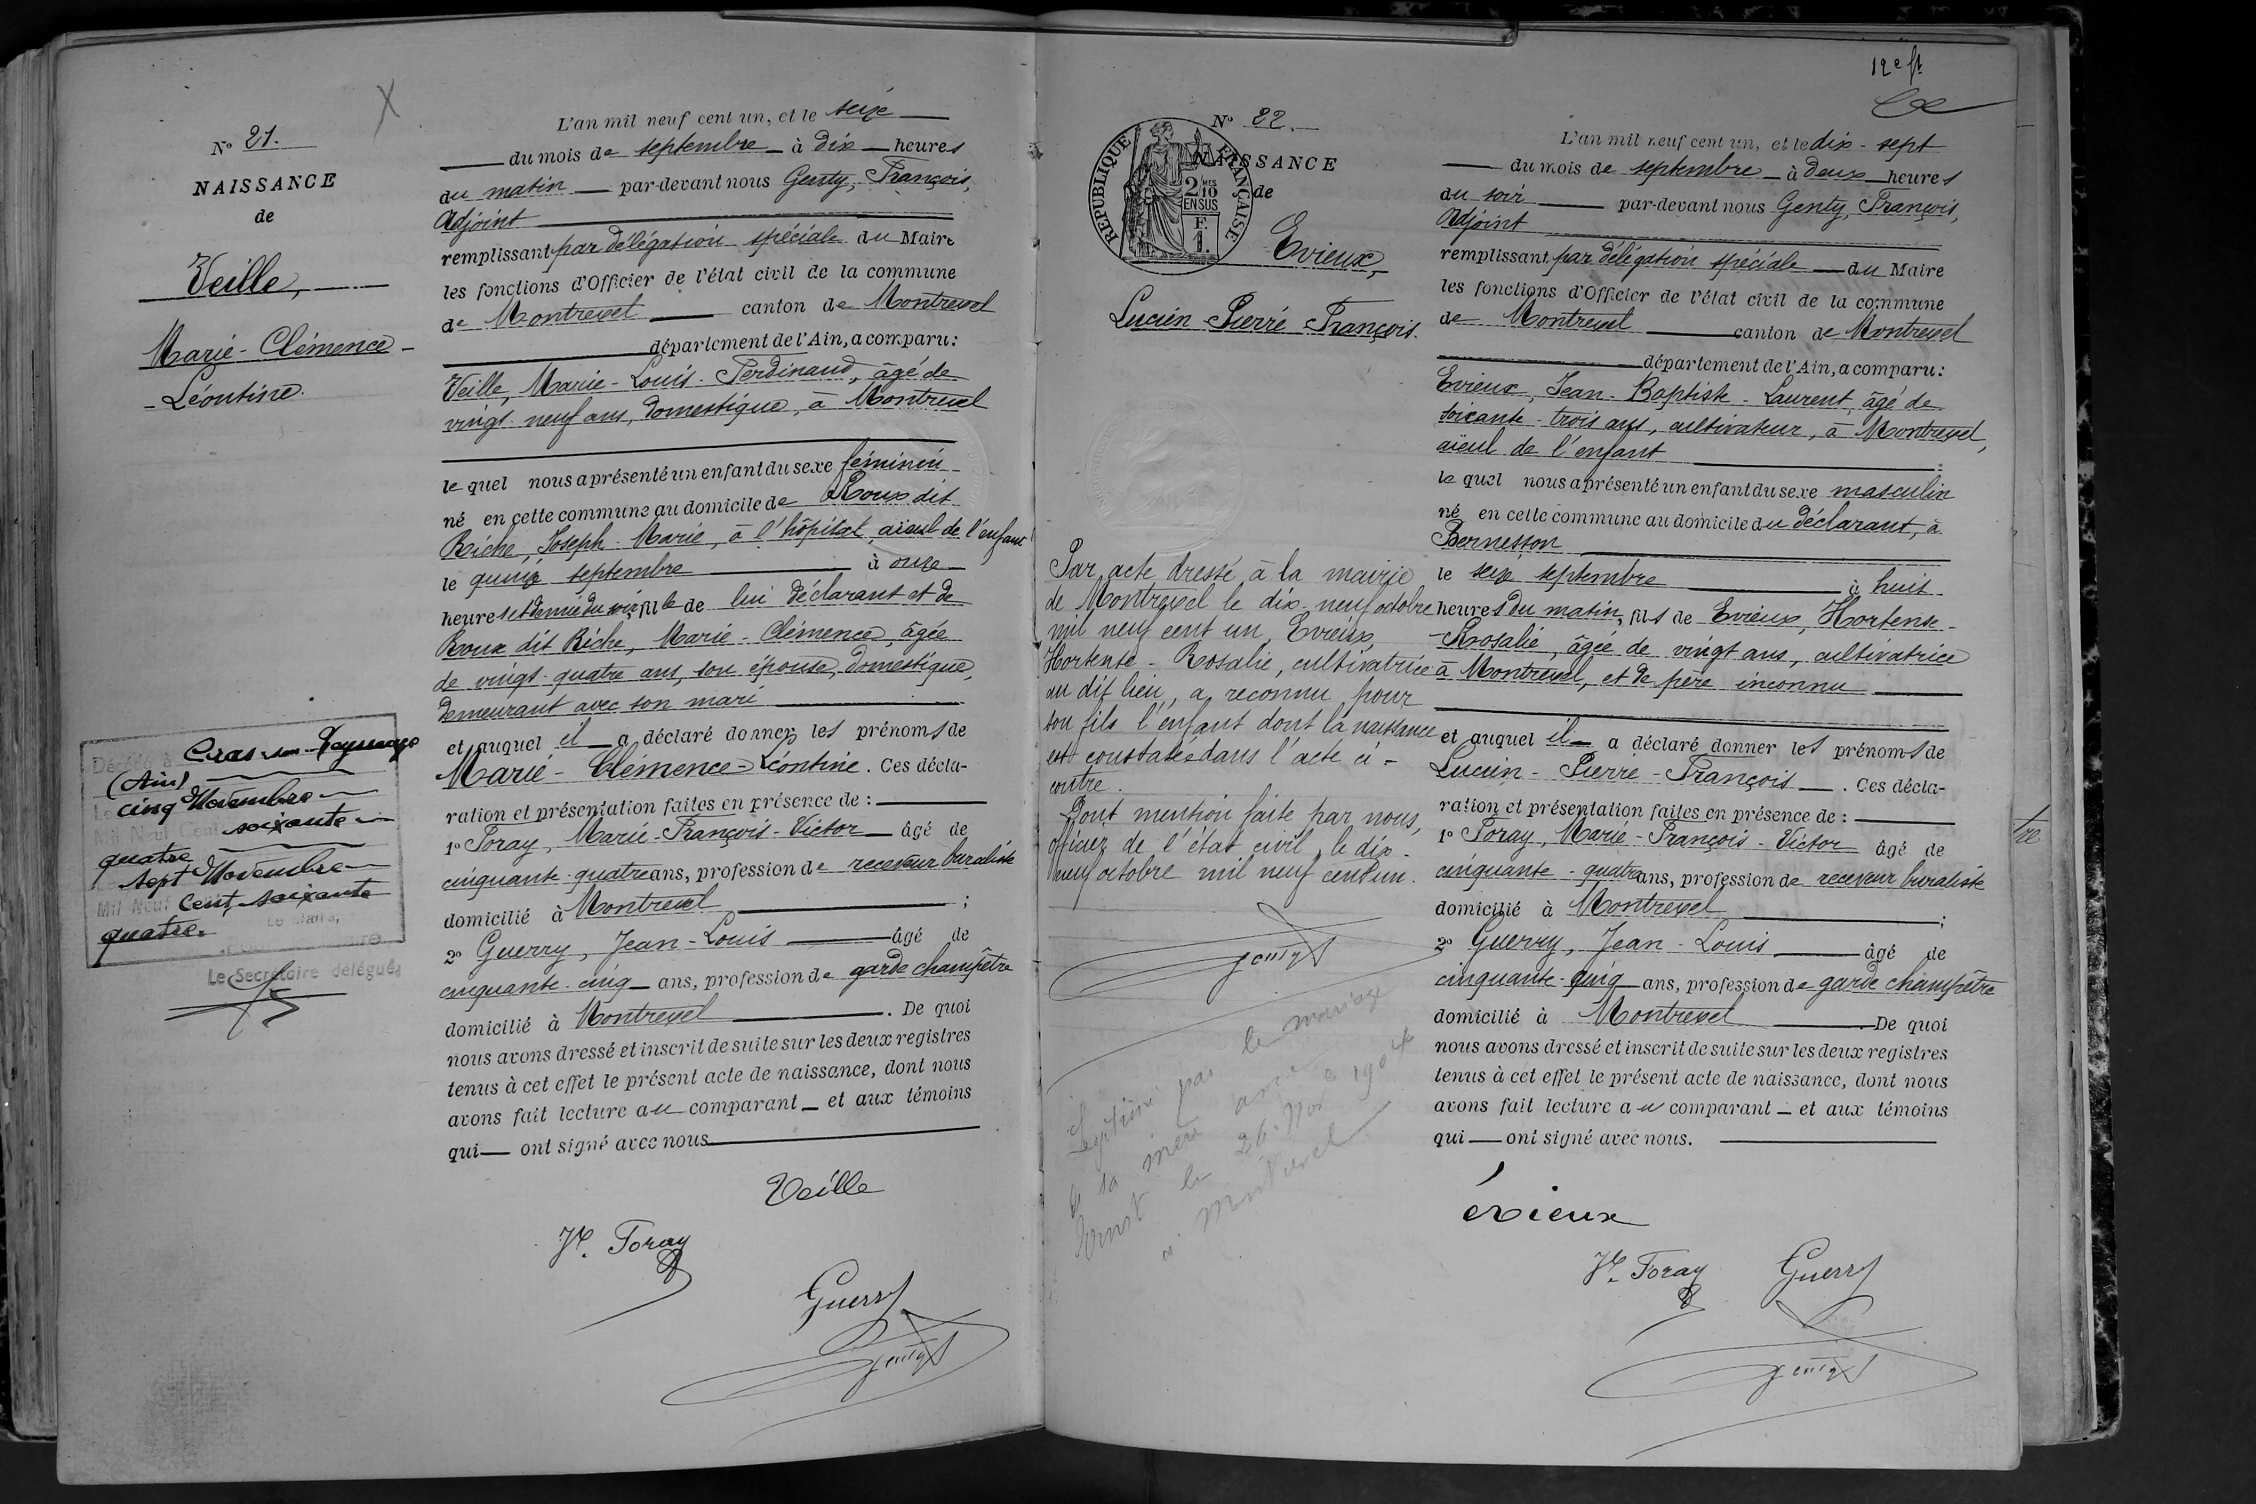 N° 21.
NAISSANCE
de
Veille,
Marie-Clémence-
-Léontine.
Décédé à Cras-sur-Reyssouze
(Ain)
Le cinq Novembre
Mil Neuf Cent soixante
quatre
sept Novembre
Mil Neuf Cent soixante
quatre.
Le Maire,
Le Secrétaire délégué,
L'an mil neuf cent un, et le seize
du mois de septembre à dix heures
du matin par-devant nous Genty, François,
Adjoint
remplissant par délégation spéciale du Maire
les fonctions d'Officier de l'état civil de la commune
de Montrevel canton de Montrevel
département de l'Ain, a comparu:
Veille, Marie-Louis-Ferdinand, âgé de
vingt-neuf ans, domestique, à Montrevel
le quel nous a présenté un enfant du sexe féminin
né en cette commune au domicile de Roux dit
Biche, Joseph-Marie, à l'hôpital, aïeul de l'enfant
le quinze septembre à onze
heures et demie du soir, fille de lui déclarant et de
Roux dit Biche, Marie-Clémence, âgée
de vingt-quatre ans, son épouse, domestique,
demeurant avec son mari
et auquel il a déclaré donner les prénoms de
Marie-Clémence-Léontine. Ces décla-
ration et présentation faites en présence de:
1° Foray, Marie-François-Victor âgé de
cinquante-quatre ans, profession de receveur buraliste
domicilié à Montrevel ;
2° Guerry, Jean-Louis âgé de
cinquante-cinq ans, profession de garde champêtre
domicilié à Montrevel. De quoi
nous avons dressé et inscrit de suite sur les deux registres
tenus à cet effet le présent acte de naissance, dont nous
avons fait lecture au comparant et aux témoins
qui ont signé avec nous
Veille
Vr. Foray
Guerry
Genty
12e ft
N° 22.
NAISSANCE
de
REPUBLIQUE FRANÇAISE
2 MES
10
EN SUS
F.
1.
Evieux,
Lucien-Pierre-François.
Par acte dressé à la mairie
de Montrevel le dix-neuf octobre
mil neuf cent un, Evieux,
Hortense-Rosalie, cultivatrice
au dit lieu, a reconnu pour
son fils l'enfant dont la naissance
est constatée dans l'acte ci-
contre.
Dont mention faite par nous,
officier de l'état civil, le dix-
neuf octobre mil neuf cent un.
Genty
Légitimé par le mariage
de sa mère avec
Ernst le 26 Nov e 1904
à Montrevel
L'an mil neuf cent un, et le dix-sept
du mois de septembre à deux heures
du soir par-devant nous Genty, François,
Adjoint
remplissant par délégation spéciale du Maire
les fonctions d'Officier de l'état civil de la commune
de Montrevel canton de Montrevel
département de l'Ain, a comparu:
Evieux, Jean-Baptiste-Laurent, âgé de
soixante-trois ans, cultivateur, à Montrevel,
aïeul de l'enfant
le quel nous a présenté un enfant du sexe masculin
né en cette commune au domicile du déclarant, à
Bernesson
le seize septembre à huit
heures du matin, fils de Evieux, Hortense-
-Rosalie, âgée de vingt ans, cultivatrice
à Montrevel, et de père inconnu
et auquel il a déclaré donner les prénoms de
Lucien-Pierre-François. Ces décla-
ration et présentation faites en présence de:
1° Foray, Marie-François-Victor âgé de
cinquante-quatre ans, profession de receveur buraliste
domicilié à Montrevel ;
2° Guerry, Jean-Louis âgé de
cinquante-cinq ans, profession de garde champêtre
domicilié à Montrevel De quoi
nous avons dressé et inscrit de suite sur les deux registres
tenus à cet effet le présent acte de naissance, dont nous
avons fait lecture au comparant et aux témoins
qui ont signé avec nous.
évieux
Vr. Foray
Guerry
Genty